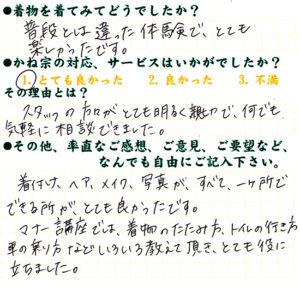 ●着物を着てみてどうでしたか？
普段とは違った体験で、とても
楽しかったです。
●かね宗の対応、サービスはいかがでしたか？
1. とても良かった　2. 良かった　3. 不満
その理由とは？
スタッフの方々がとても明るく親切で、何でも
気軽に相談できました。
●その他、率直なご感想、ご意見、ご要望など、
なんでも自由にご記入下さい。
着付け、ヘア、メイク、写真が、すべて、一ヶ所で
できる所が、とても良かったです。
マナー講座では、着物のたたみ方、トイレの行き方
車の乗り方などいろいろ教えて頂き、とても役に
立ちました。